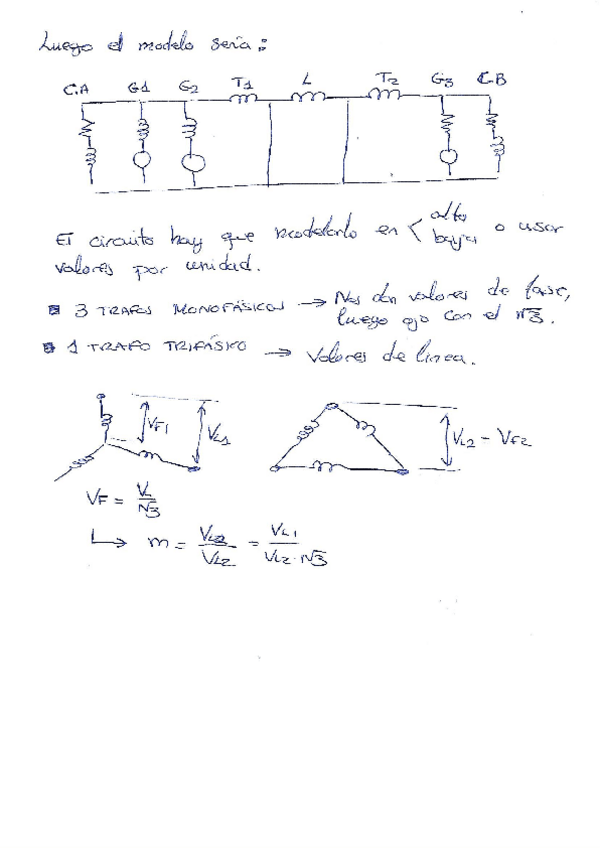 Luego el modelo sería:
C.A G1 G2 T1 L T2 G3 C.B
El circuito hay que modelarlo en < alta
baja o usar
valores por unidad.
3 TRAFOS MONOFÁSICOS → Nos dan valores de fase,
luego ojo con el √3.
1 TRAFO TRIFÁSICO → Valores de línea.
VF1 VL1 VL2 - VF2
VF = VL/√3
↳ m = /VL2 = VL1/VL2·√3